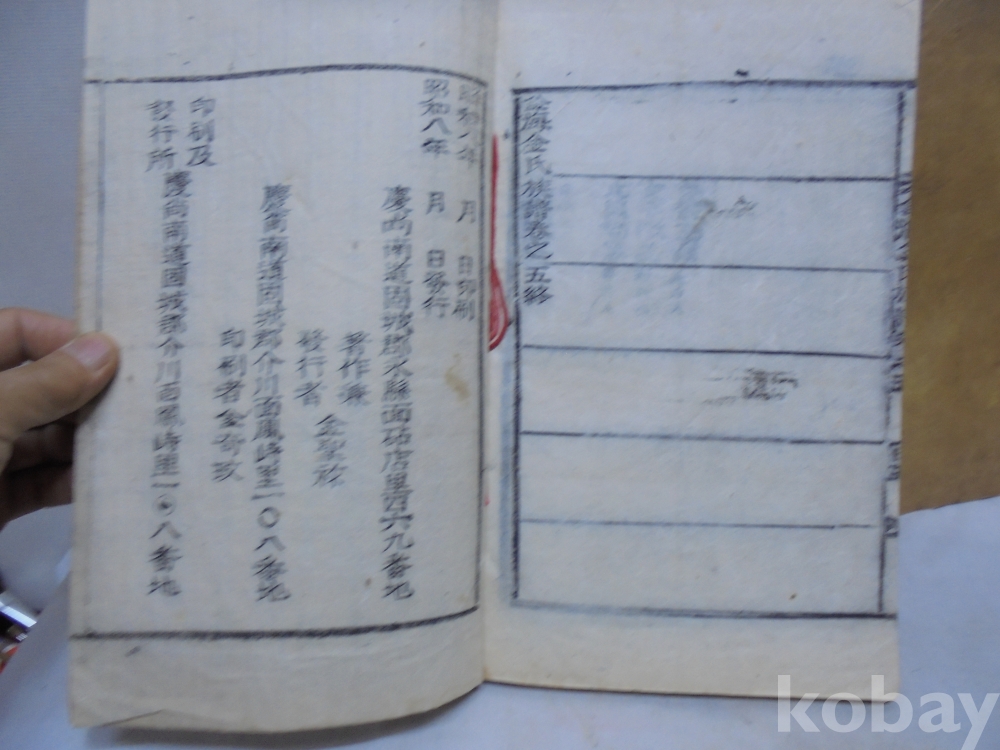 金海金氏族譜卷之五終
昭和八年 月 日印刷
昭和八年 月 日發行
慶尙南道固城郡大縣面 店里 九番地
著作兼
發行者 金
慶尙南道固城郡介川面 里一〇八番地
印刷者金
印刷及
發行所 慶尙南道固城郡介川面 里一〇八番地
kobay